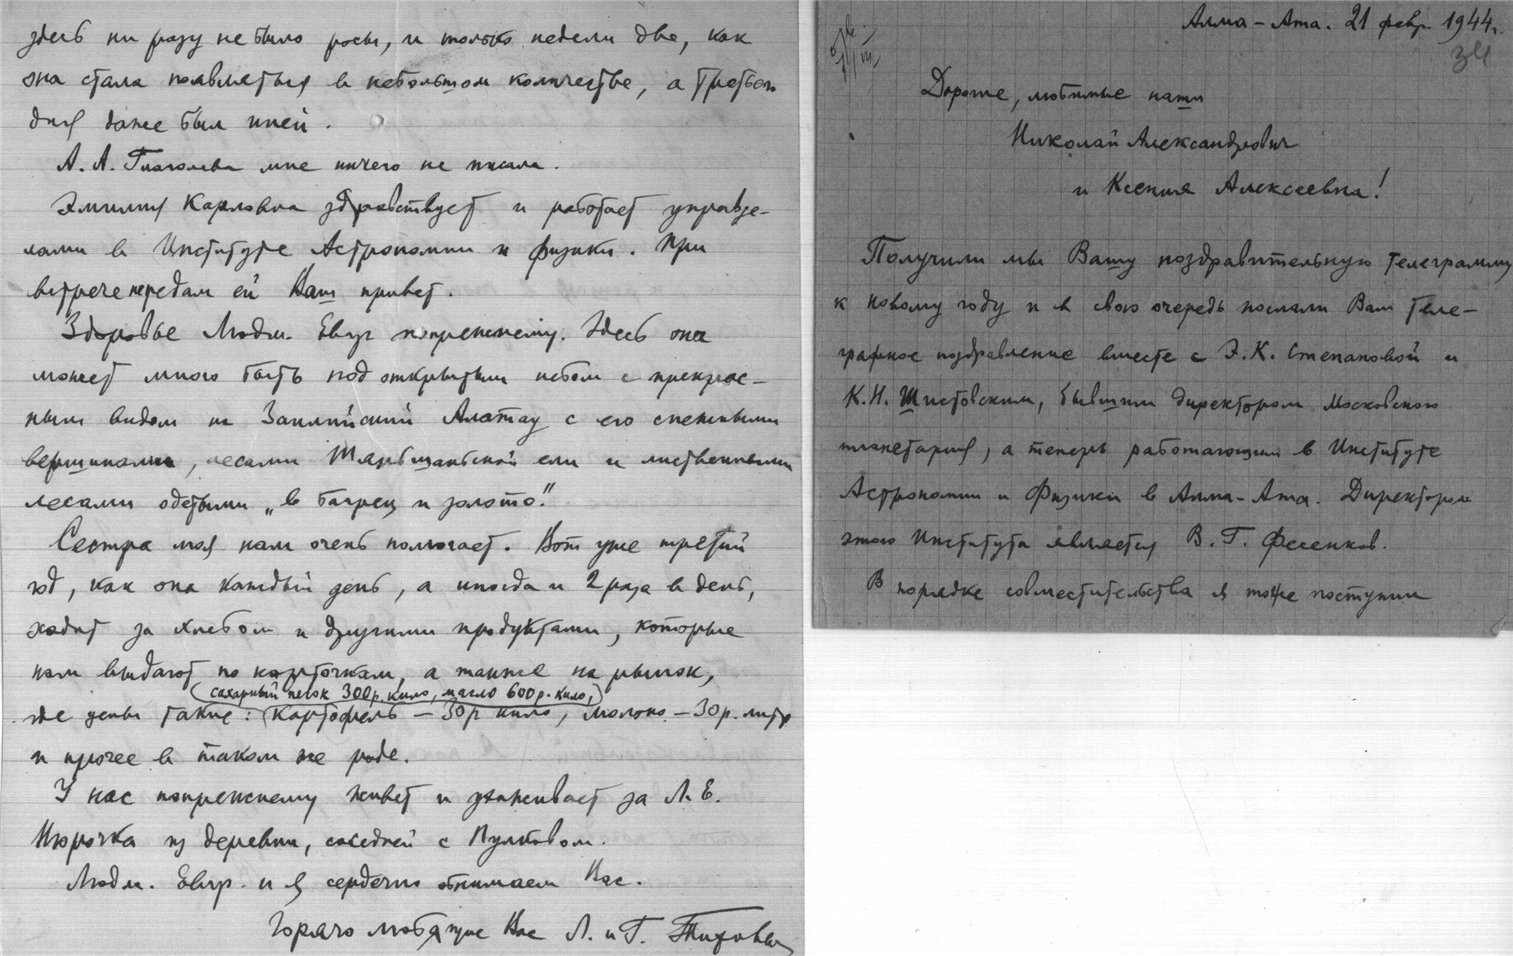 здесь ни разу не было росы, и только недели две, как
она стала появляться в небольшом количестве, а третьего
дня даже был иней.
А. А. Глаголева мне ничего не писала.
Эмилия Карловна здравствует и работает управде-
лами в Институте Астрономии и физики. При
встрече передам ей Ваш привет.
Здоровье Людм. Евгр попрежнему. Здесь она
может много быть под открытым небом с прекрас-
ным видом на Заилийский Алатау с его снежными
вершинами, лесами Тяньшаньской ели и лиственными
лесами одетыми „в багрец и золото".
Сестра моя нам очень помогает. Вот уже третий
год, как она каждый день, а иногда и 2 раза в день,
ходит за хлебом и другими продуктами, которые
нам выдают по карточкам, а также на рынок,
(сахарный песок 300р. кило, масло 600р. кило,)
где цены такие: картофель – 30р кило, молоко – 30р. литр
и прочее в таком же роде.
У нас попрежнему живет и ухаживает за Л. Е.
Нюрочка из деревни, соседней с Пулковом.
Людм. Евгр. и я сердечно обнимаем Вас.
Горячо любящие Вас Л. и Г. Тиховы
Алма-Ата. 21 февр 1944г.
34
Дорогие, любимые наши
Николай Александрович
и Ксения Алексеевна!
Получили мы Вашу поздравительную телеграмму
к новому году и в свою очередь послали Вам теле-
графное поздравление вместе с Э. К. Степановой и
К. Н. Шистовским, бывшим директором Московского
планетария, а теперь работающим в Институте
Астрономии и Физики в Алма-Ата. Директором
этого Института является В. Г. Фесенков.
В порядке совместительства я тоже поступил